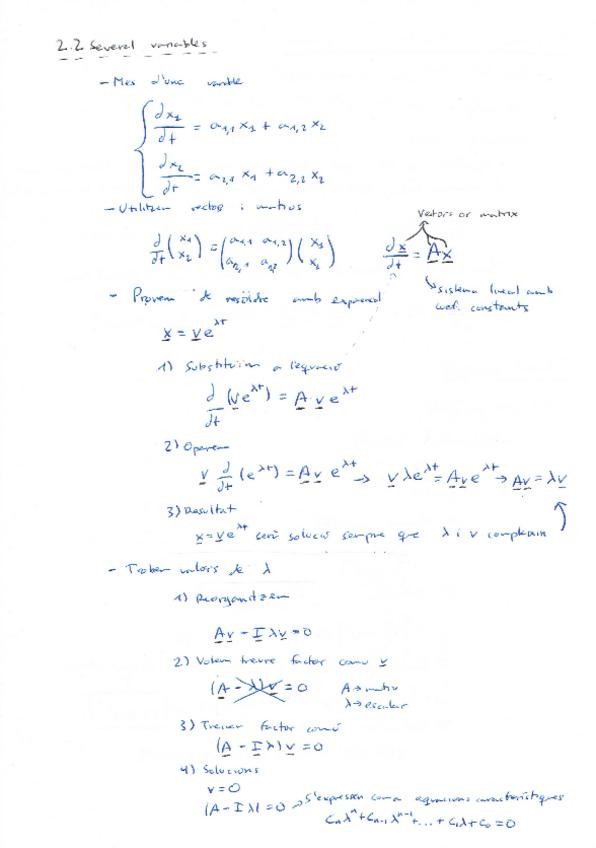 2.2 Several variables
- Mes d'una variable
dx₁/dt = a₁,₁ x₁ + a₁,₂ x₂
dx₂/dt = a₂,₁ x₁ + a₂,₂ x₂
- Utilitzem vectors i matrius
Vectors or matrix
d/dt (x₁ x₂) = (a₁,₁ a₁,₂ a₂,₁ a₂,₂) (x₁ x₂)
dx/dt = A x
sistema lineal amb
coef. constants
- Provem de resoldre amb exponencial
x = v e^λt
1) Substituïm a l'equació
d/dt (v e^λt) = A v e^λt
2) Operem
v d/dt (e^λt) = A v e^λt → v λ e^λt = A v e^λt → A v = λ v
3) Resultat
x = v e^λt serà solució sempre que λ i v compleixin
- Trobem valors de λ
1) Reorganitzem
A v - I λ v = 0
2) Volem treure factor comú v
(A - λ) v = 0 A → matriu
λ → escalar
3) Treiem factor comú
(A - I λ) v = 0
4) Solucions
v = 0
|A - I λ| = 0 → S'expressen com a equacions característiques
cₙλⁿ + cₙ₋₁λⁿ⁻¹ + ... + c₁λ + c₀ = 0